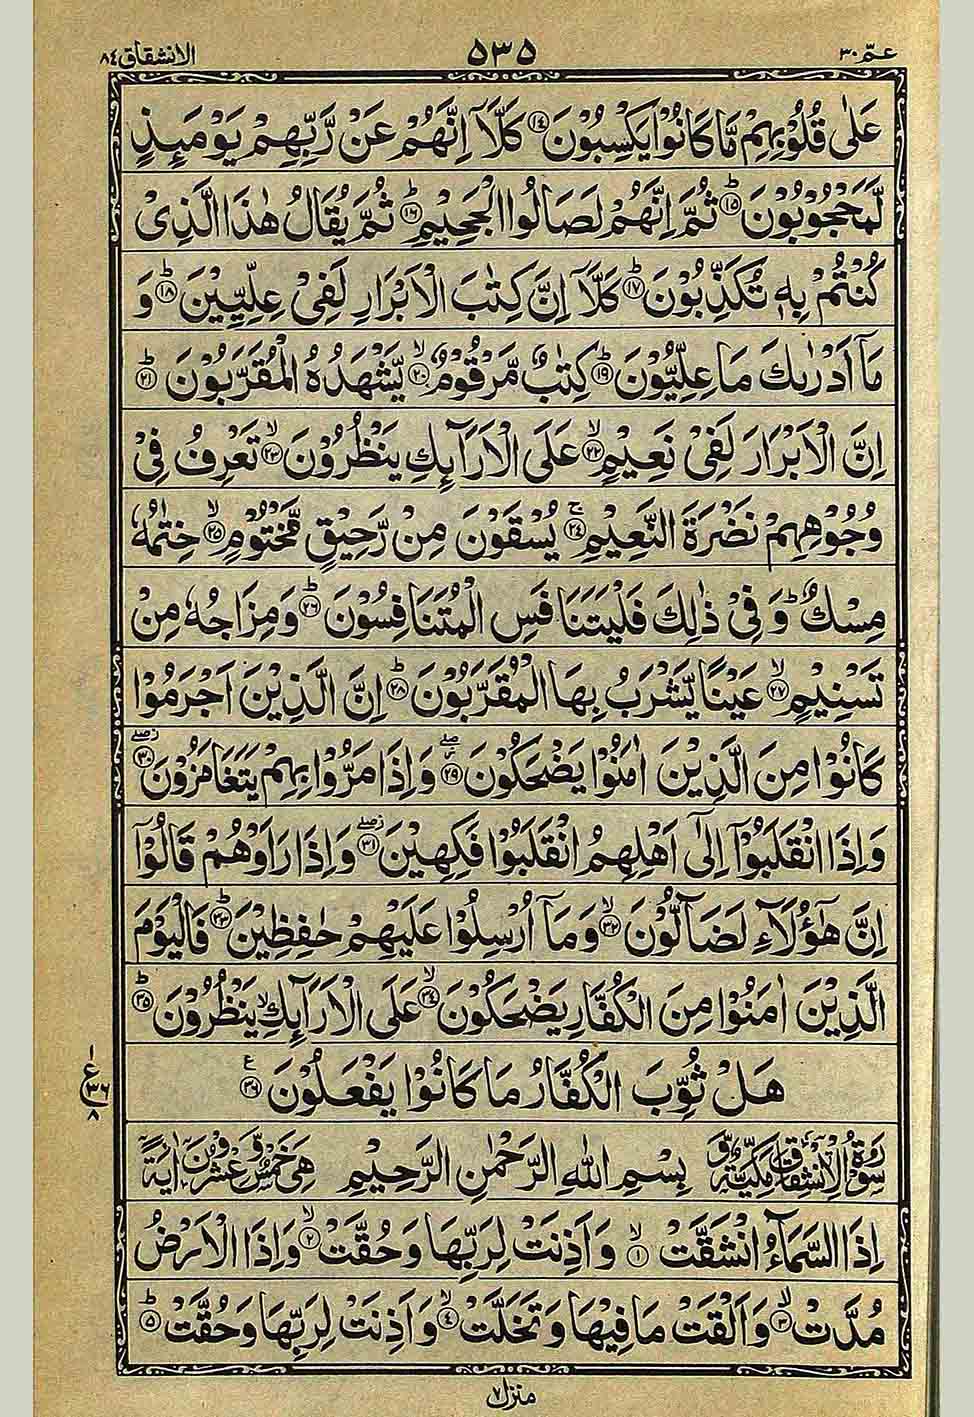 عمّ ٣٠ ٥٣٥ الانشقاق ٨٤
عَلٰى قُلُوْبِهِمْ مَّا كَانُوْا يَكْسِبُوْنَ ۝١٤ كَلَّاۤ اِنَّهُمْ عَنْ رَّبِّهِمْ يَوْمَئِذٍ
لَّمَحْجُوْبُوْنَ ۝١٥ؕ ثُمَّ اِنَّهُمْ لَصَالُوا الْجَحِيْمِ ۝١٦ؕ ثُمَّ يُقَالُ هٰذَا الَّذِىْ
كُنْتُمْ بِهٖ تُكَذِّبُوْنَ ۝١٧ؕ كَلَّاۤ اِنَّ كِتٰبَ الْاَبْرَارِ لَفِىْ عِلِّيِّيْنَ ۝١٨ؕ وَ
مَاۤ اَدْرٰىكَ مَا عِلِّيُّوْنَ ۝١٩ؕ كِتٰبٌ مَّرْقُوْمٌ ۝٢٠ۙ يَّشْهَدُهُ الْمُقَرَّبُوْنَ ۝٢١ؕ
اِنَّ الْاَبْرَارَ لَفِىْ نَعِيْمٍ ۝٢٢ۙ عَلَى الْاَرَآئِكِ يَنْظُرُوْنَ ۝٢٣ۙ تَعْرِفُ فِىْ
وُجُوْهِهِمْ نَضْرَةَ النَّعِيْمِ ۝٢٤ۚ يُسْقَوْنَ مِنْ رَّحِيْقٍ مَّخْتُوْمٍ ۝٢٥ۙ خِتٰمُهٗ
مِسْكٌ ؕ وَفِىْ ذٰلِكَ فَلْيَتَنَافَسِ الْمُتَنَافِسُوْنَ ۝٢٦ؕ وَمِزَاجُهٗ مِنْ
تَسْنِيْمٍ ۝٢٧ۙ عَيْنًا يَّشْرَبُ بِهَا الْمُقَرَّبُوْنَ ۝٢٨ؕ اِنَّ الَّذِيْنَ اَجْرَمُوْا
كَانُوْا مِنَ الَّذِيْنَ اٰمَنُوْا يَضْحَكُوْنَ ۝٢٩ۖ وَاِذَا مَرُّوْا بِهِمْ يَتَغَامَزُوْنَ ۝٣٠ۖ
وَاِذَا انْقَلَبُوْۤا اِلٰٓى اَهْلِهِمُ انْقَلَبُوْا فَكِهِيْنَ ۝٣١ۖ وَاِذَا رَاَوْهُمْ قَالُوْۤا
اِنَّ هٰٓؤُلَآءِ لَضَآلُّوْنَ ۝٣٢ۙ وَمَاۤ اُرْسِلُوْا عَلَيْهِمْ حٰفِظِيْنَ ۝٣٣ؕ فَالْيَوْمَ
الَّذِيْنَ اٰمَنُوْا مِنَ الْكُفَّارِ يَضْحَكُوْنَ ۝٣٤ۙ عَلَى الْاَرَآئِكِ ۙ يَنْظُرُوْنَ ۝٣٥ؕ
هَلْ ثُوِّبَ الْكُفَّارُ مَا كَانُوْا يَفْعَلُوْنَ ۝٣٦
١ ع ٣٦ ٨
سُوْرَةُ الْاِنْشِقَاقِ مَكِّيَّةٌ وَّ بِسْمِ اللهِ الرَّحْمٰنِ الرَّحِيْمِ هِىَ خَمْسٌ وَّعِشْرُوْنَ اٰيَةً
اِذَا السَّمَآءُ انْشَقَّتْ ۝١ۙ وَاَذِنَتْ لِرَبِّهَا وَحُقَّتْ ۝٢ۙ وَاِذَا الْاَرْضُ
مُدَّتْ ۝٣ۙ وَاَلْقَتْ مَا فِيْهَا وَتَخَلَّتْ ۝٤ۙ وَاَذِنَتْ لِرَبِّهَا وَحُقَّتْ ۝٥ؕ
منزل ٧